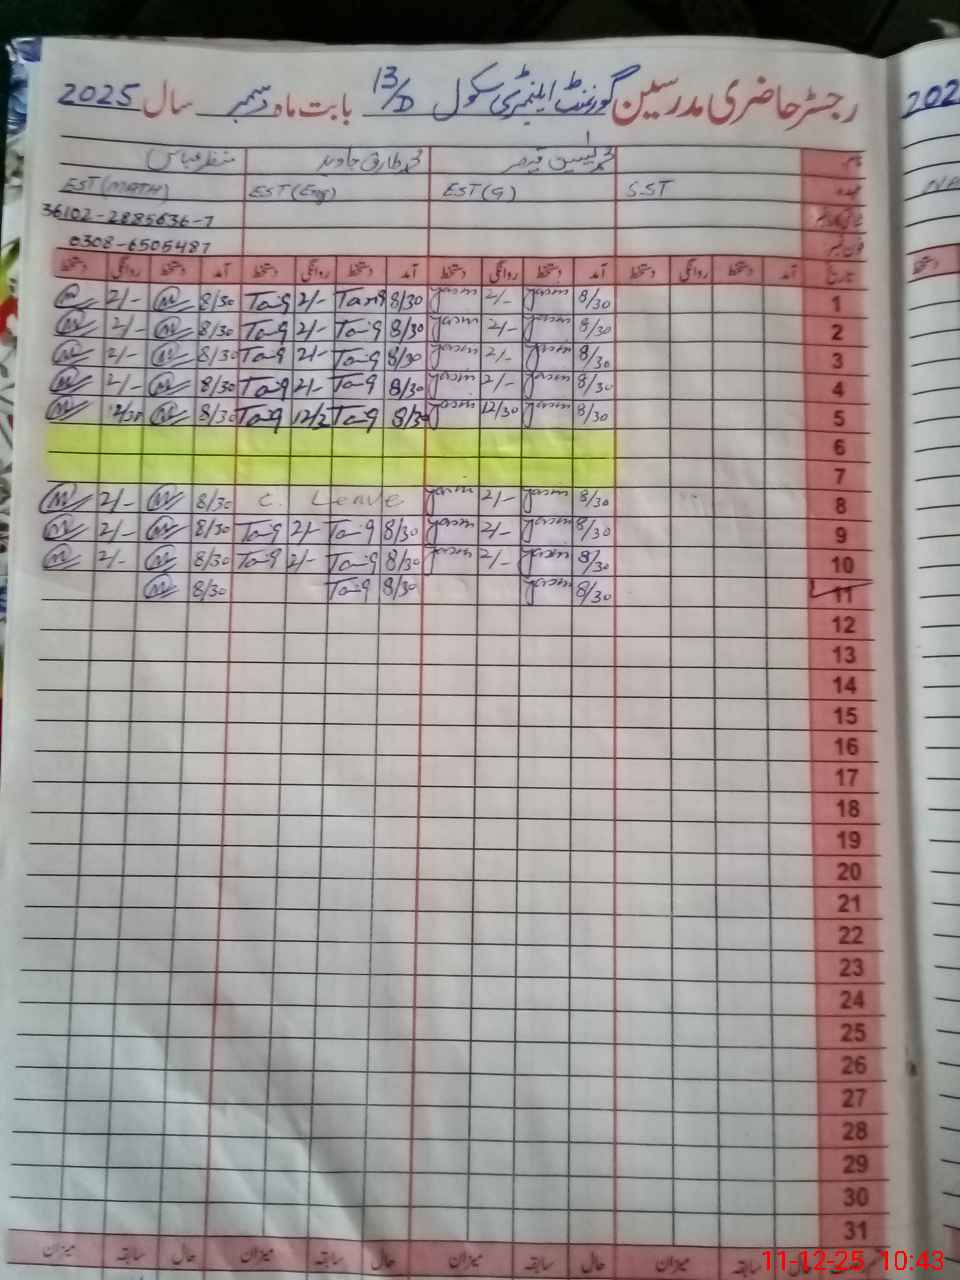 رجسٹر حاضری مدرسین گورنمنٹ ایلیمنٹری سکول 13/D بابت ماہ دسمبر سال 2025
نام محمد طارق جاوید منظر عباس
عہدہ S.ST EST(G) EST(Eng) EST(MATH)
36102-2885636-7
فون نمبر 0308-6505487
تاریخ آمد دستخط روانگی دستخط آمد دستخط روانگی دستخط آمد دستخط روانگی دستخط آمد دستخط روانگی دستخط
1 8/30 Yasin 2/- Yasin 8/30 Tariq 2/- Tariq 8/30 2/-
2 8/30 Yasin 2/- Yasin 8/30 Tariq 2/- Tariq 8/30 2/-
3 8/30 Yasin 2/- Yasin 8/30 Tariq 2/- Tariq 8/30 2/-
4 8/30 Yasin 2/- Yasin 8/30 Tariq 2/- Tariq 8/30 2/-
5 8/30 Yasin 12/30 Yasin 8/30 Tariq Tariq 8/30 12/30
6
7
8 8/30 Yasin 2/- Yasin C. Leave 8/30 2/-
9 8/30 Yasin 2/- Yasin 8/30 Tariq 2/- Tariq 8/30 2/-
10 8/30 Yasin 2/- Yasin 8/30 Tariq 2/- Tariq 8/30 2/-
11 8/30 Yasin 8/30 Tariq 8/30
12
13
14
15
16
17
18
19
20
21
22
23
24
25
26
27
28
29
30
31
حال سابقہ میزان حال سابقہ میزان حال سابقہ میزان حال سابقہ میزان
11-12-25 10:43
202
دستخط